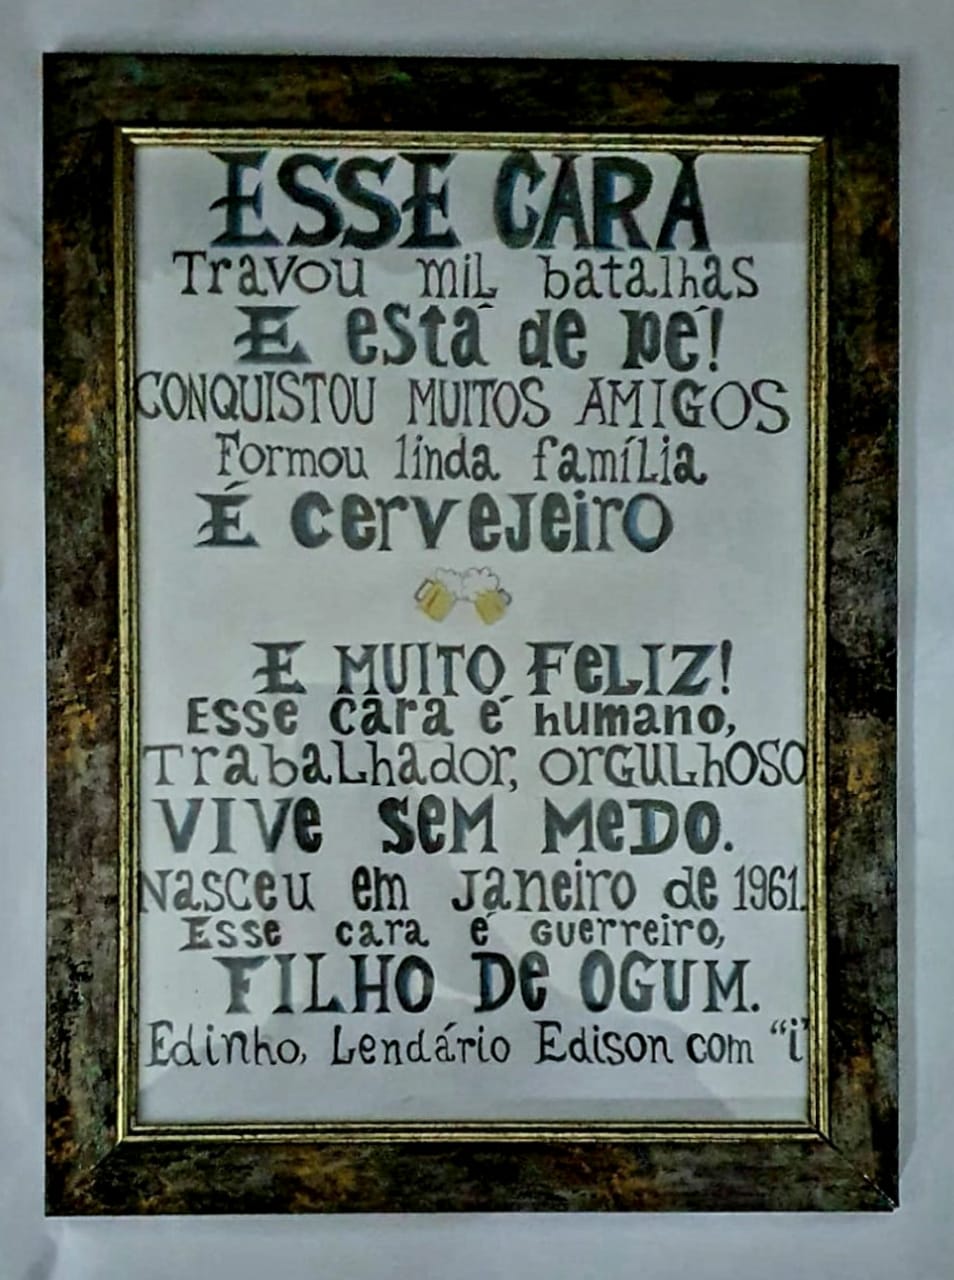 ESSE CARA
Travou mil batalhas
E está de pé!
CONQUISTOU MUITOS AMIGOS
Formou linda família
É cervejeiro
E MUITO FELIZ!
Esse cara é humano,
Trabalhador, orgulhoso
VIVE SEM MEDO.
Nasceu em Janeiro de 1961.
Esse cara é guerreiro,
FILHO DE OGUM.
Edinho, Lendário Edison com "i"